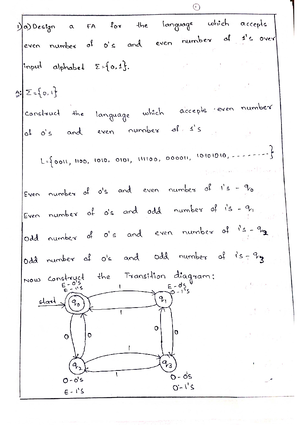 1) a) Design a FA for the language which accepts
even number of 0's and even number of 1's over
input alphabet Σ={0,1}.
Σ={0,1}
Construct the language which accepts even number
of 0's and even number of 1's
L={0011, 1100, 1010, 0101, 111100, 000011, 10101010, --------}
Even number of 0's and even number of 1's - q0
Even number of 0's and odd number of 1's - q1
Odd number of 0's and even number of 1's - q2
Odd number of 0's and odd number of 1's - q3
Now construct the Transition diagram:
E-0's
E-1's
E-0's
O-1's
start
q0
1
1
q1
0
0
0
0
q2
1
1
q3
O-0's
E-1's
O-0's
O-1's